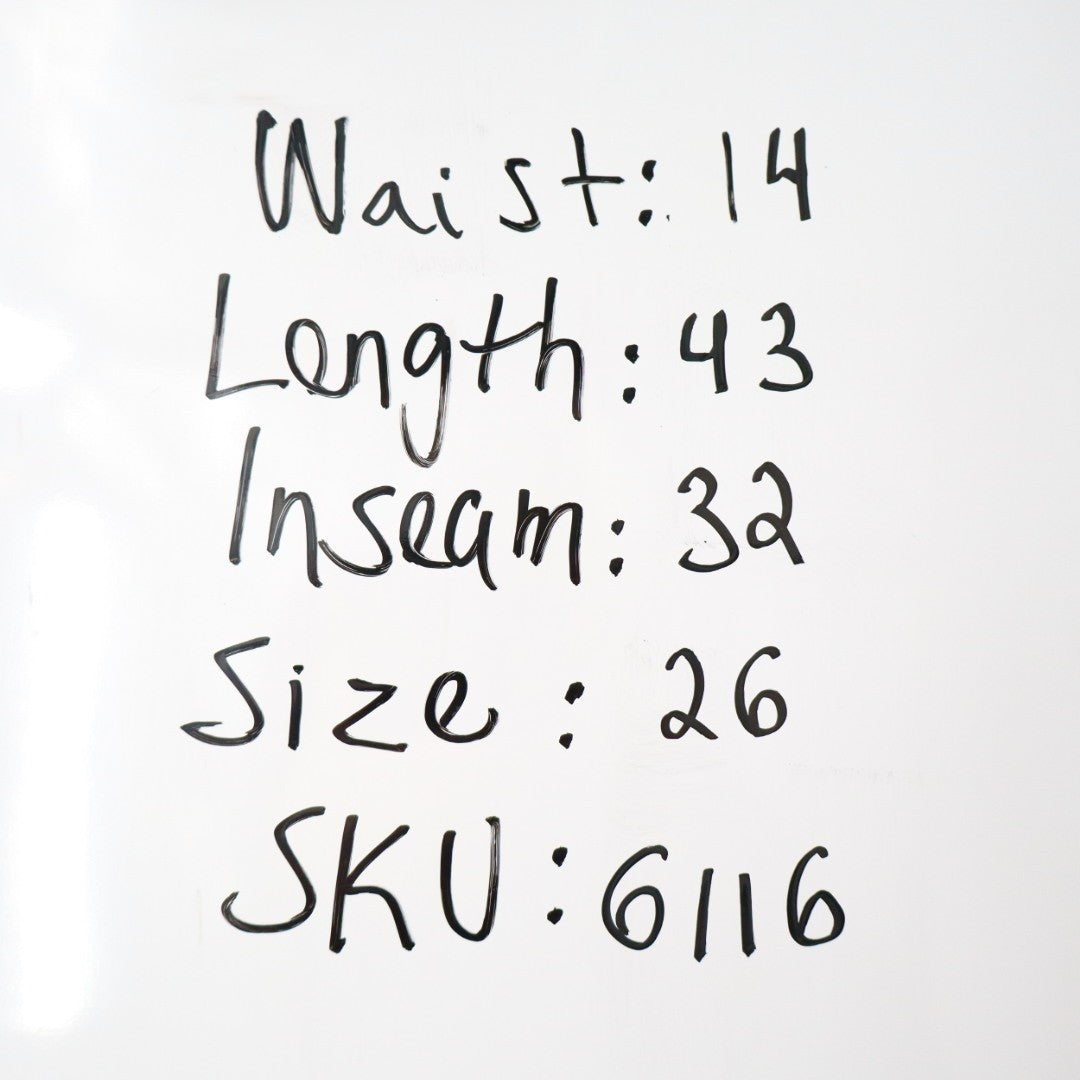 Waist: 14
Length: 43
Inseam: 32
Size: 26
SKU: 6116